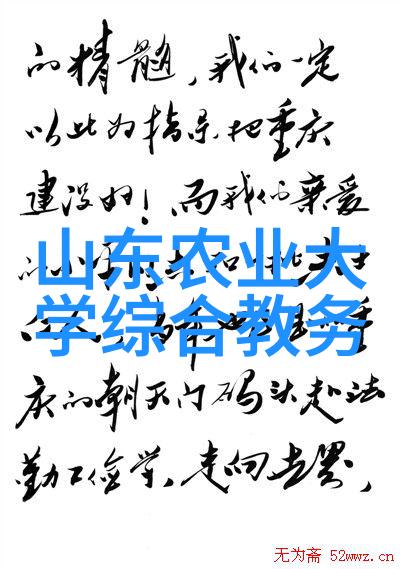 的精髓,我们一定
以此为指导把重庆
建设好！而我们亲爱
山东农业大
学综合教务
庆的朝天门码头赴法
勤工俭学,走向世界,
无为斋 52wwz.cn